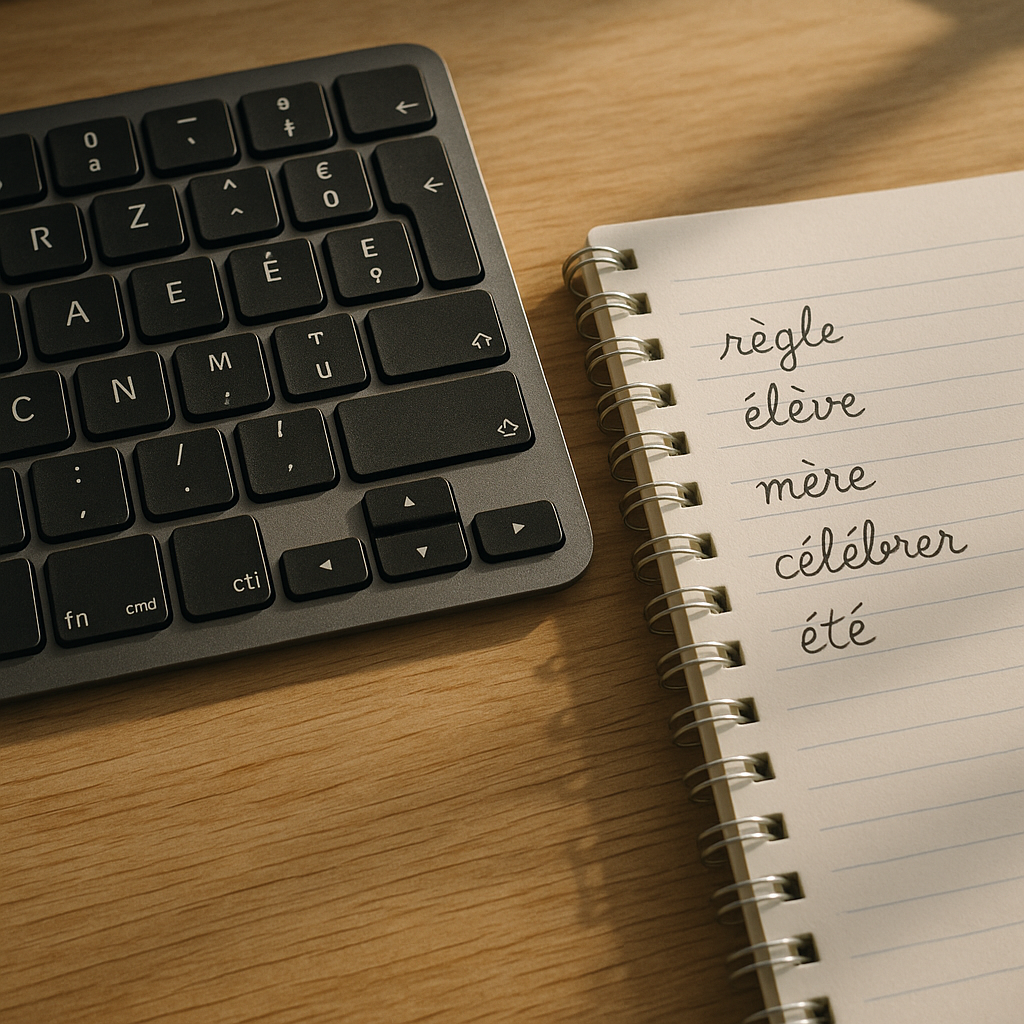 0
a
R Z ^ € 0
A E É E
C N M T U
: / .
, ,
fn cmd cti
règle
élève
mère
célébrer
été